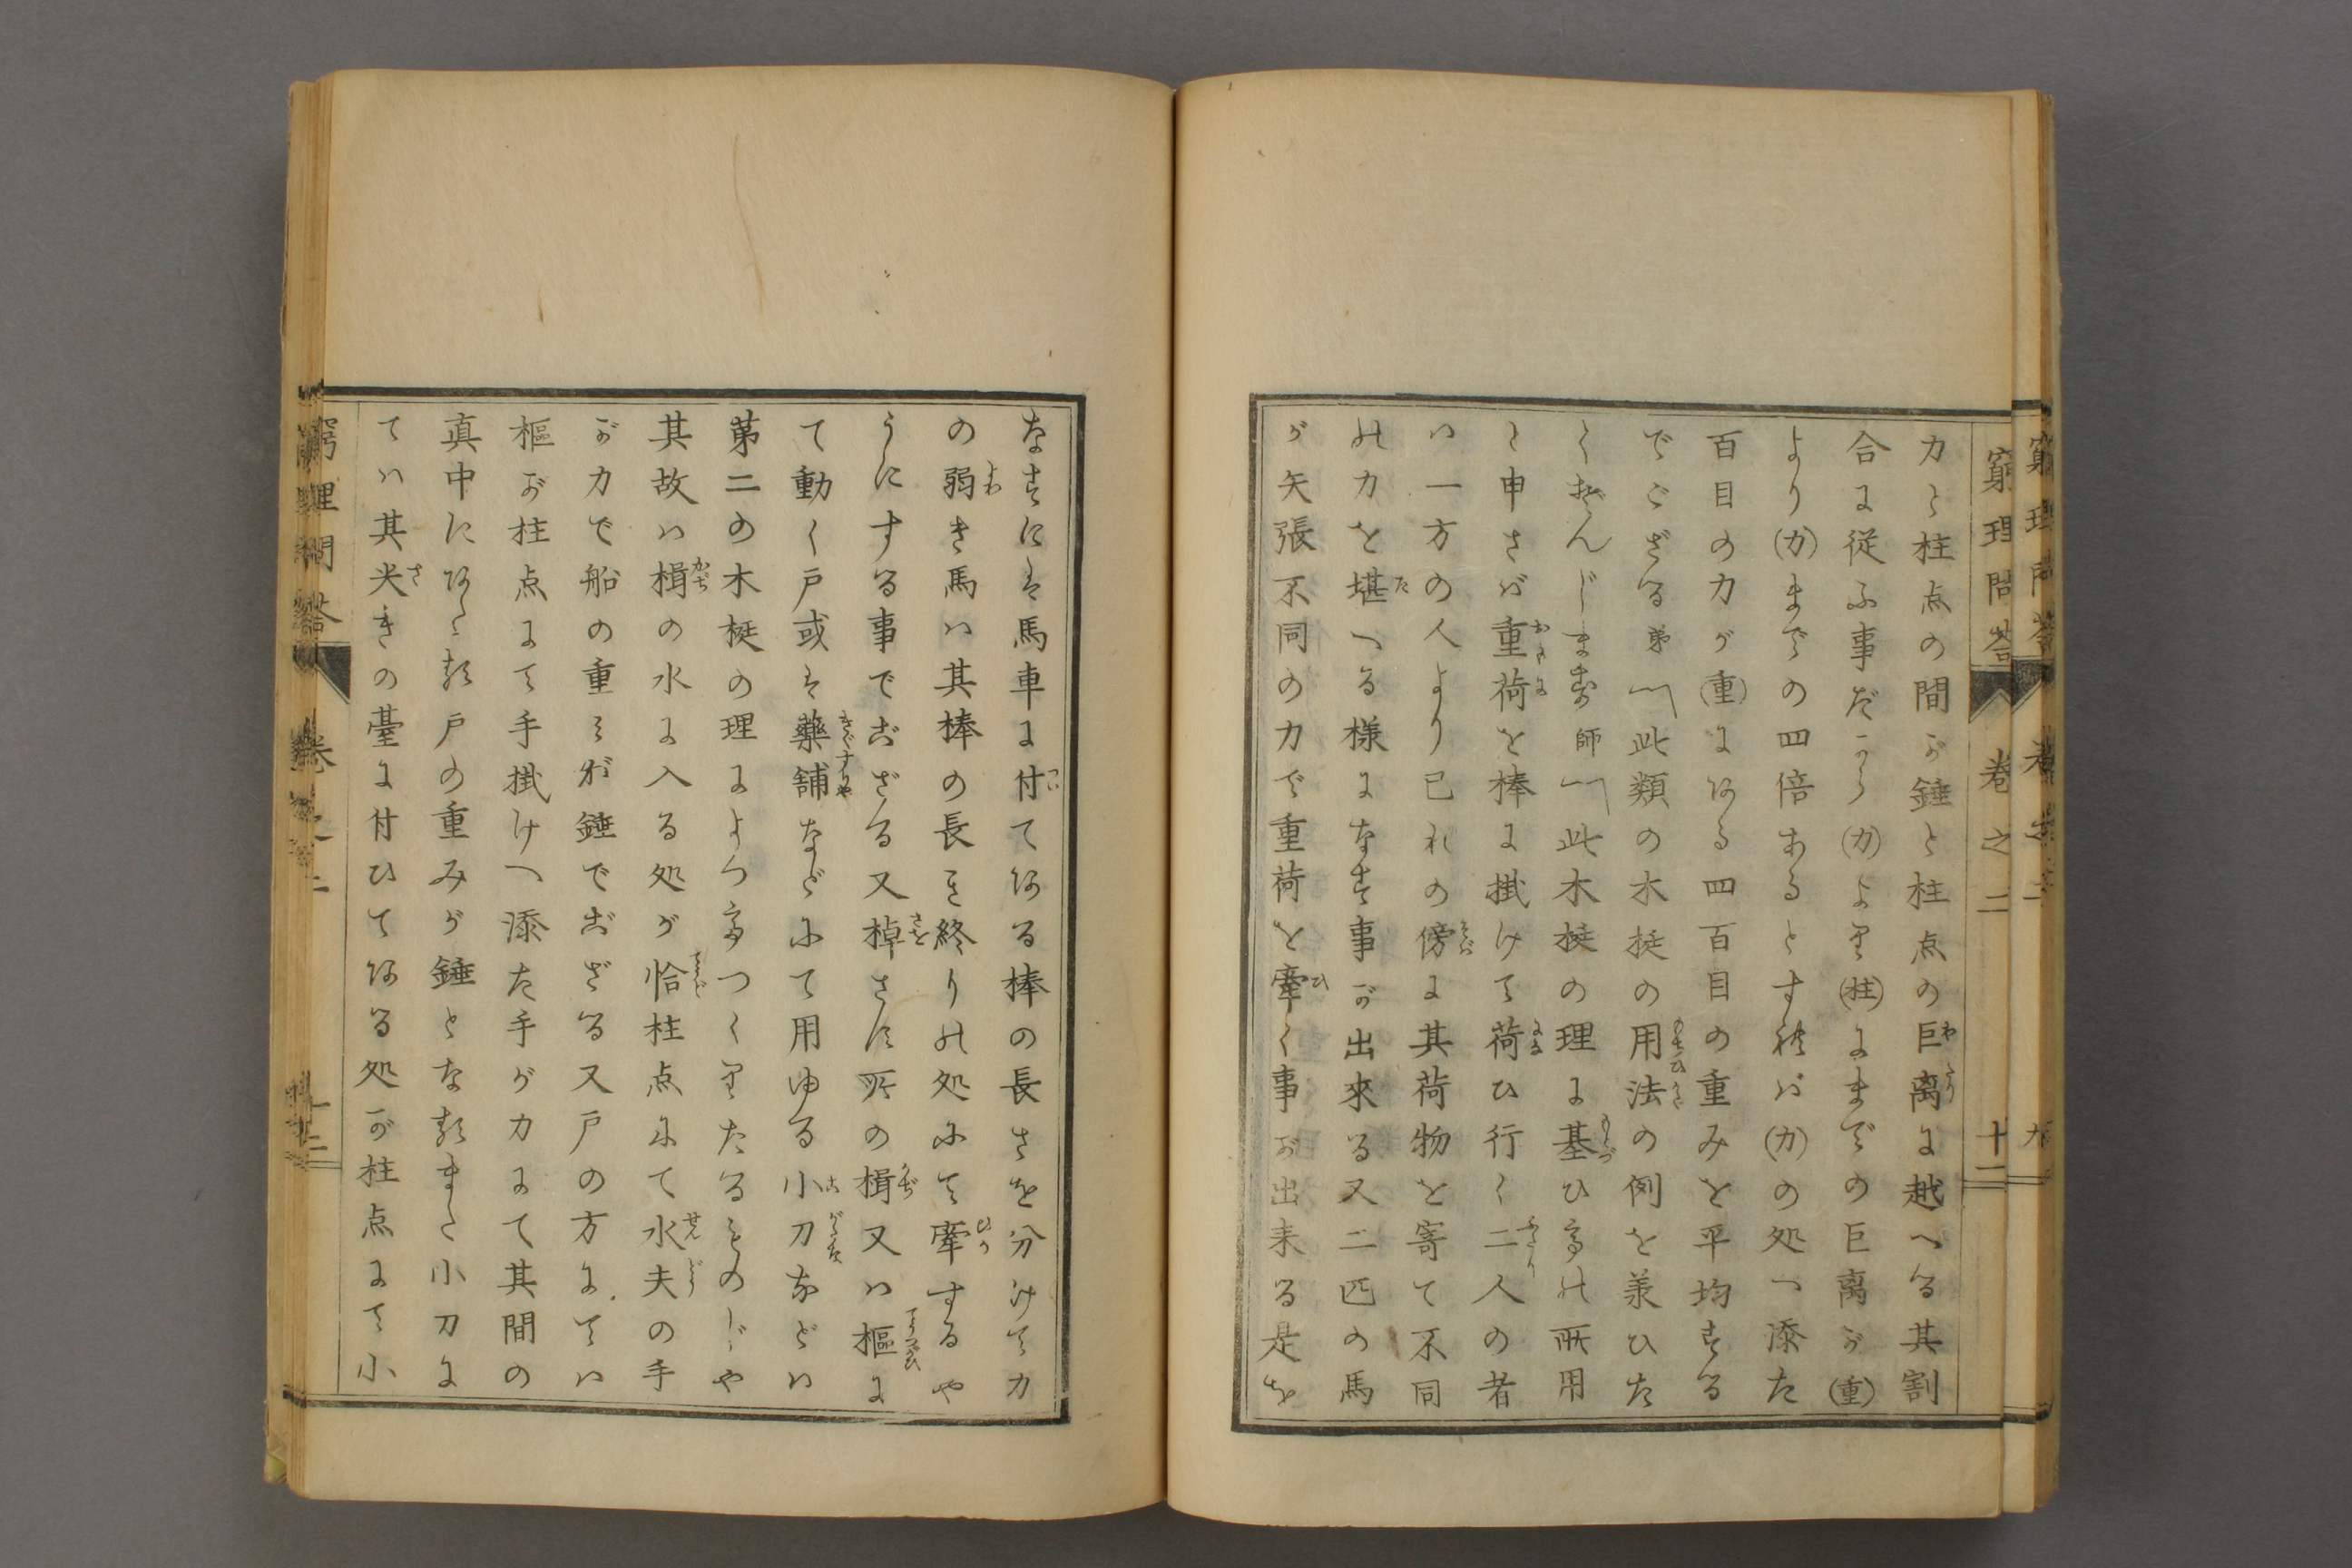 窮理問答 巻之二 十二
力と柱点の間が錘と柱点の巨離に越へる其割
合に従ふ事だから(力)より(柱)にまでの巨離が(重)
より(力)までの四倍あるとすれば(力)の処へ添た
百目の力が(重)にある四百目の重みと平均する
でござる 弟 此類の木梃の用法の例を羕ひた
くぞんじます 師 此木梃の理に基ひての所用
と申さば重荷を棒に掛けて荷ひ行く二人の者
ハ一方の人より已れの傍に其荷物を寄て不同
の力を堪へる様になす事が出來る又二匹の馬
が矢張不同の力で重荷を牽く事が出来る是を
なすには馬車に付てある棒の長さを分けて力
の弱き馬ハ其棒の長き終りの処にて牽するや
うにする事でござる又棹さす所の楫又ハ樞に
て動く戸或は藥舗などにて用ゆる小刀などハ
第二の木梃の理によつてつくりたるものじや
其故ハ楫の水に入る処が恰柱点にて水夫の手
が力で船の重みが錘でござる又戸の方にてハ
樞が柱点にて手掛けへ添た手が力にて其間の
真中にある戸の重みが錘となるまた小刀に
てハ其尖きの䑓に付ひてある処が柱点にて小
窮理問答 巻之二 十二